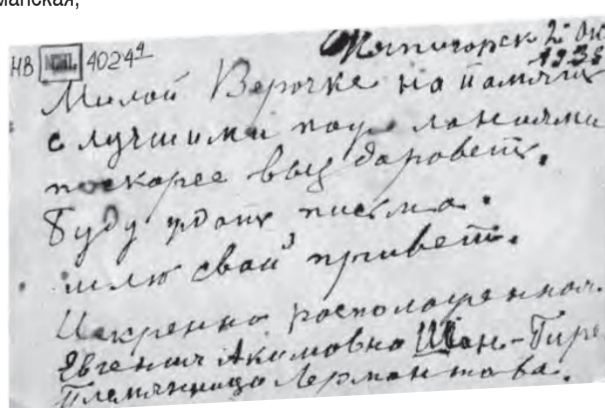 манская,
НВ 4024
Пятигорск 2 ок
193
Милой Верочке на память
с лучшими пожеланиями
поскорее выздороветь.
Буду ждать письма.
шлю свой привет.
Искренно расположенная.
Евгения Акимовна Шан-Гире
Племянница Лермонтова.